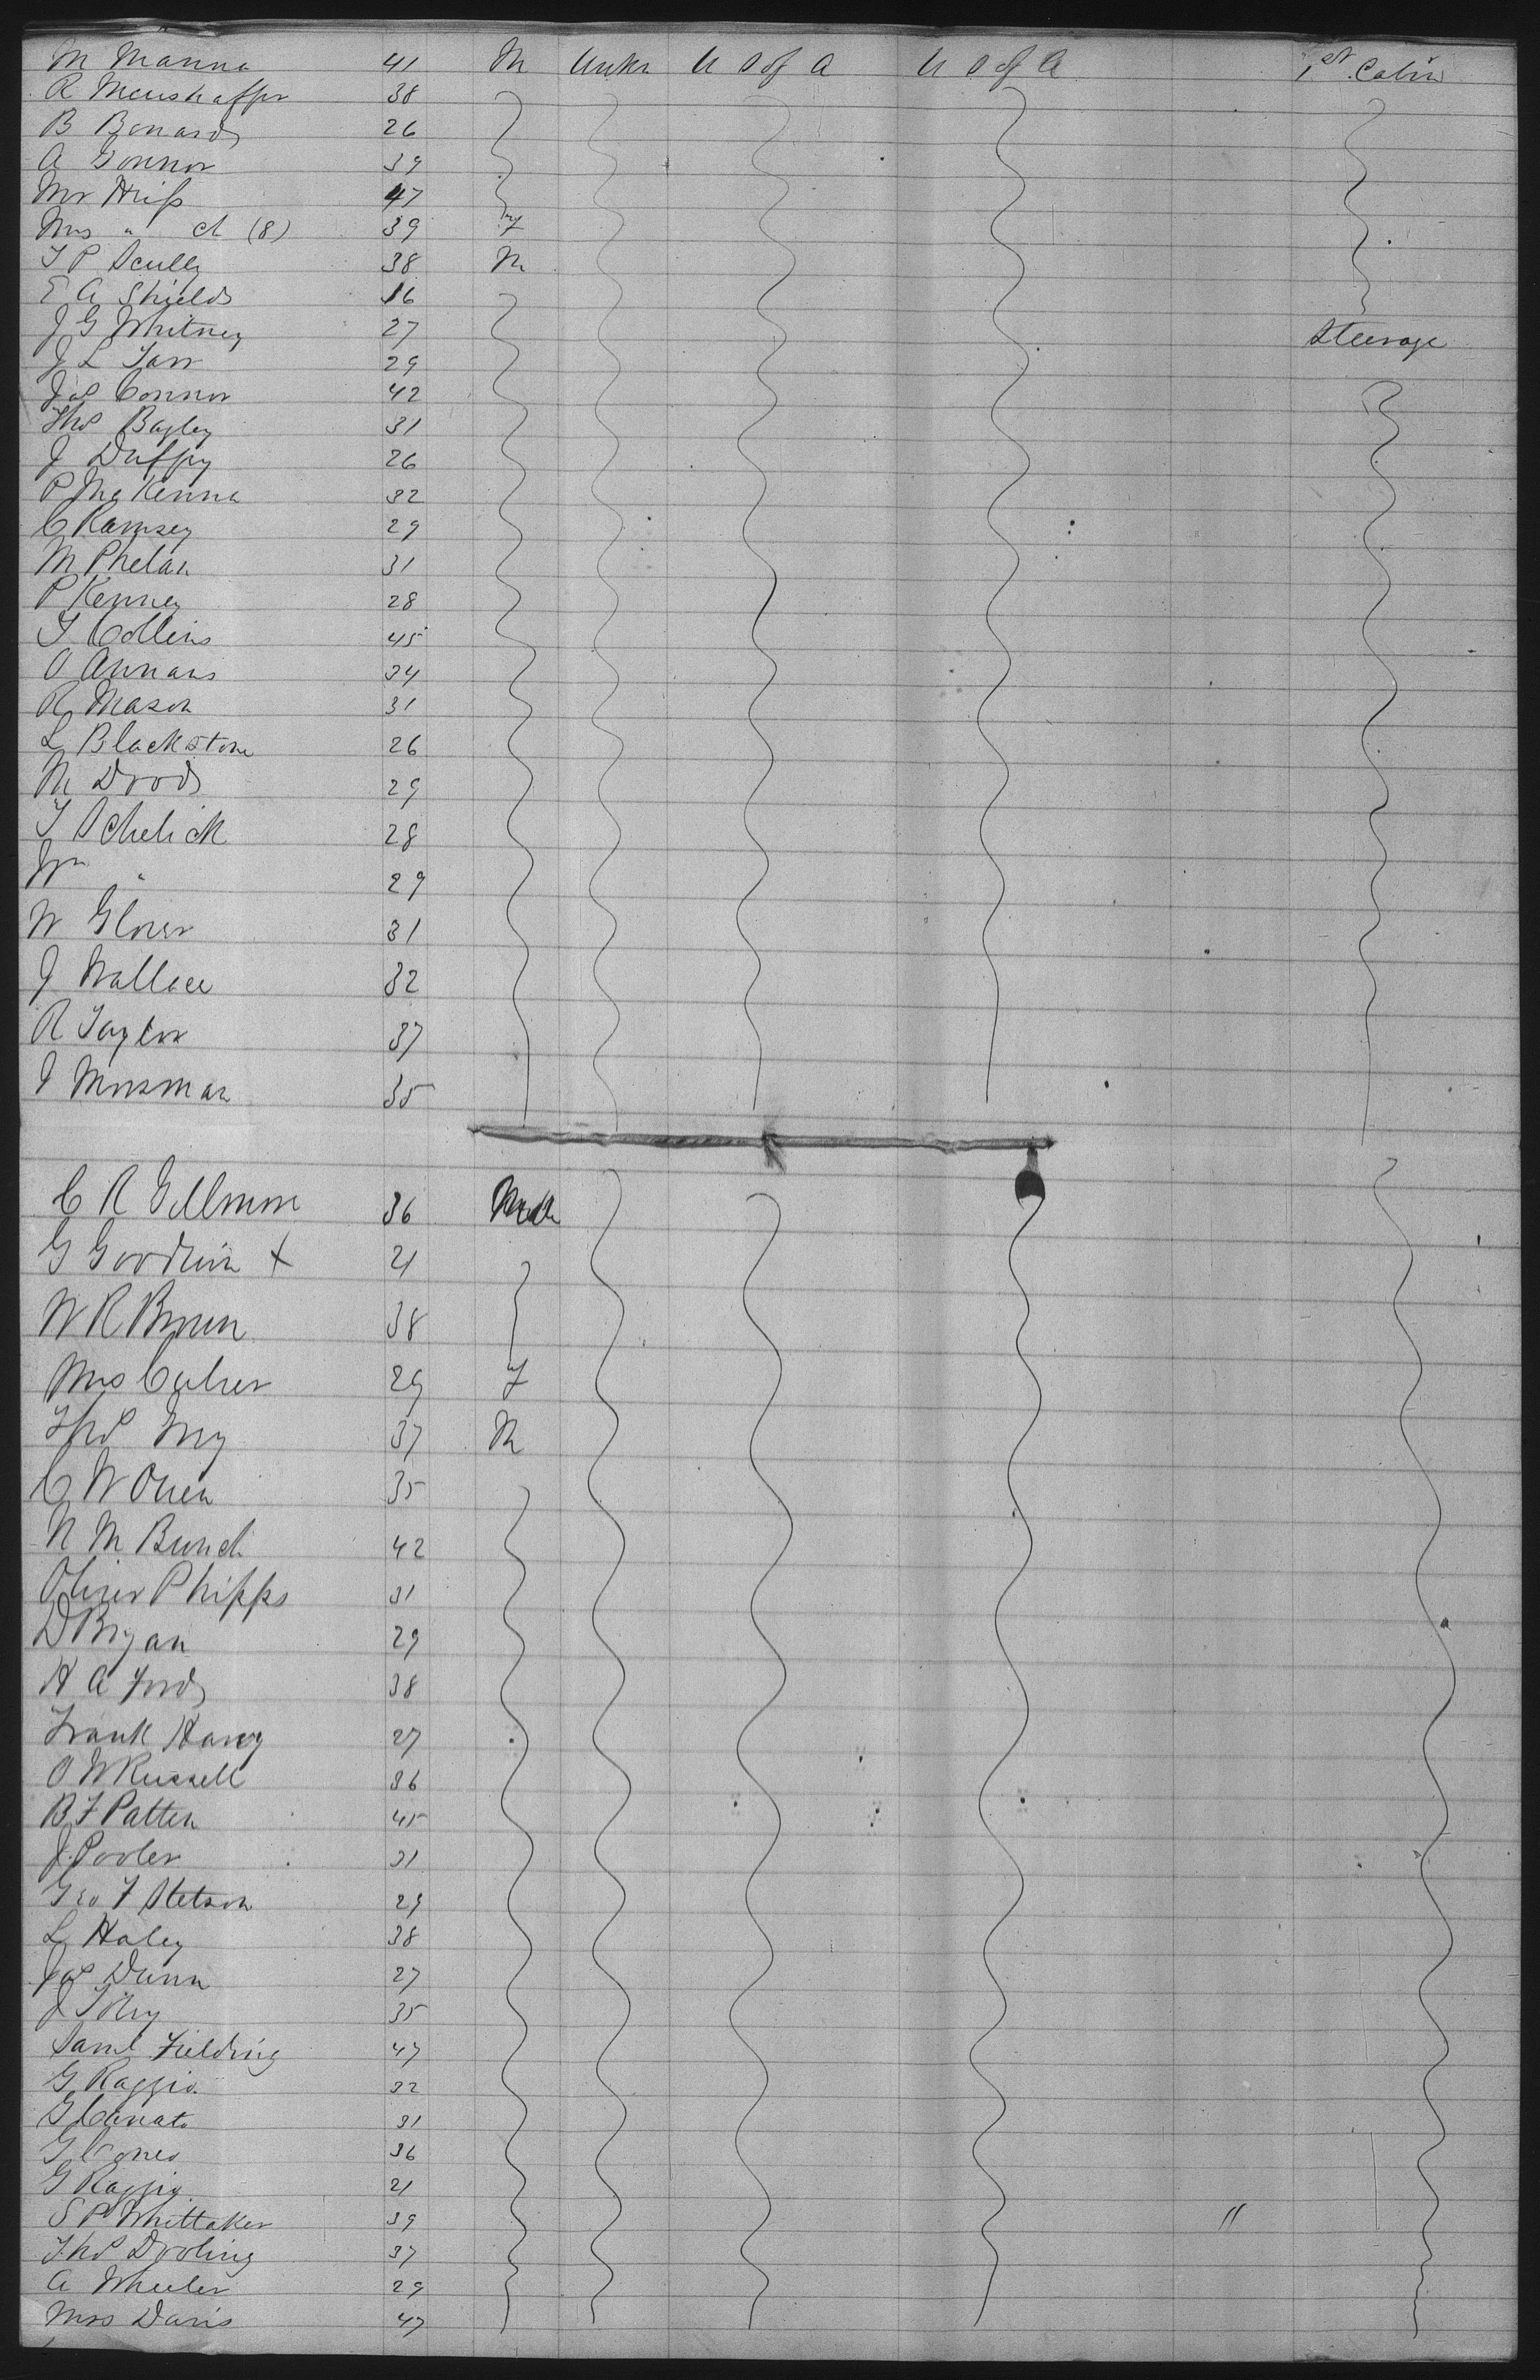 M Manna 41 M Unkn U S of A U S of A 1st Cabin
R 38
B Bonards 26
A Gonnor 39
Mr Hiss 47
Mrs " ch (8) 39 F
T P Scully 38 M
E A Shields 16
J G Whitney 27 Steerage
J L Tarr 29
Jas Connor 42
Thos Bagley 31
J Duffy 26
P McKenna 32
C Ramsey 29
M Phelan 31
P Kenney 28
T Collins 45
O Annans 34
R Mason 31
L Blackstone 26
M Drods 29
T Schelick 28
Wm " 29
W Glover 31
J Wallace 32
R Taylor 37
J Mossman 35
C R Gillmore 36 Male
G Goodwin X 21
W R Brown 38
Mrs Culver 29 F
Thos Ivry 37 M
C W Owen 35
N M Bunch 42
Oliver Phipps 31
D Bryan 29
H A Fords 38
Frank Harvey 27
O W Russell 36
B F Patten 45
J Pooler 31
Geo F Stetson 29
L Haley 38
Jas Dunn 27
J Tobey 35
Saml Fielding 47
G Raggio 32
G Canato 31
G Cones 36
G Raggio 21
S P Whittaker 39 "
Thos Dooling 37
A Wheeler 29
Mrs Davis 47